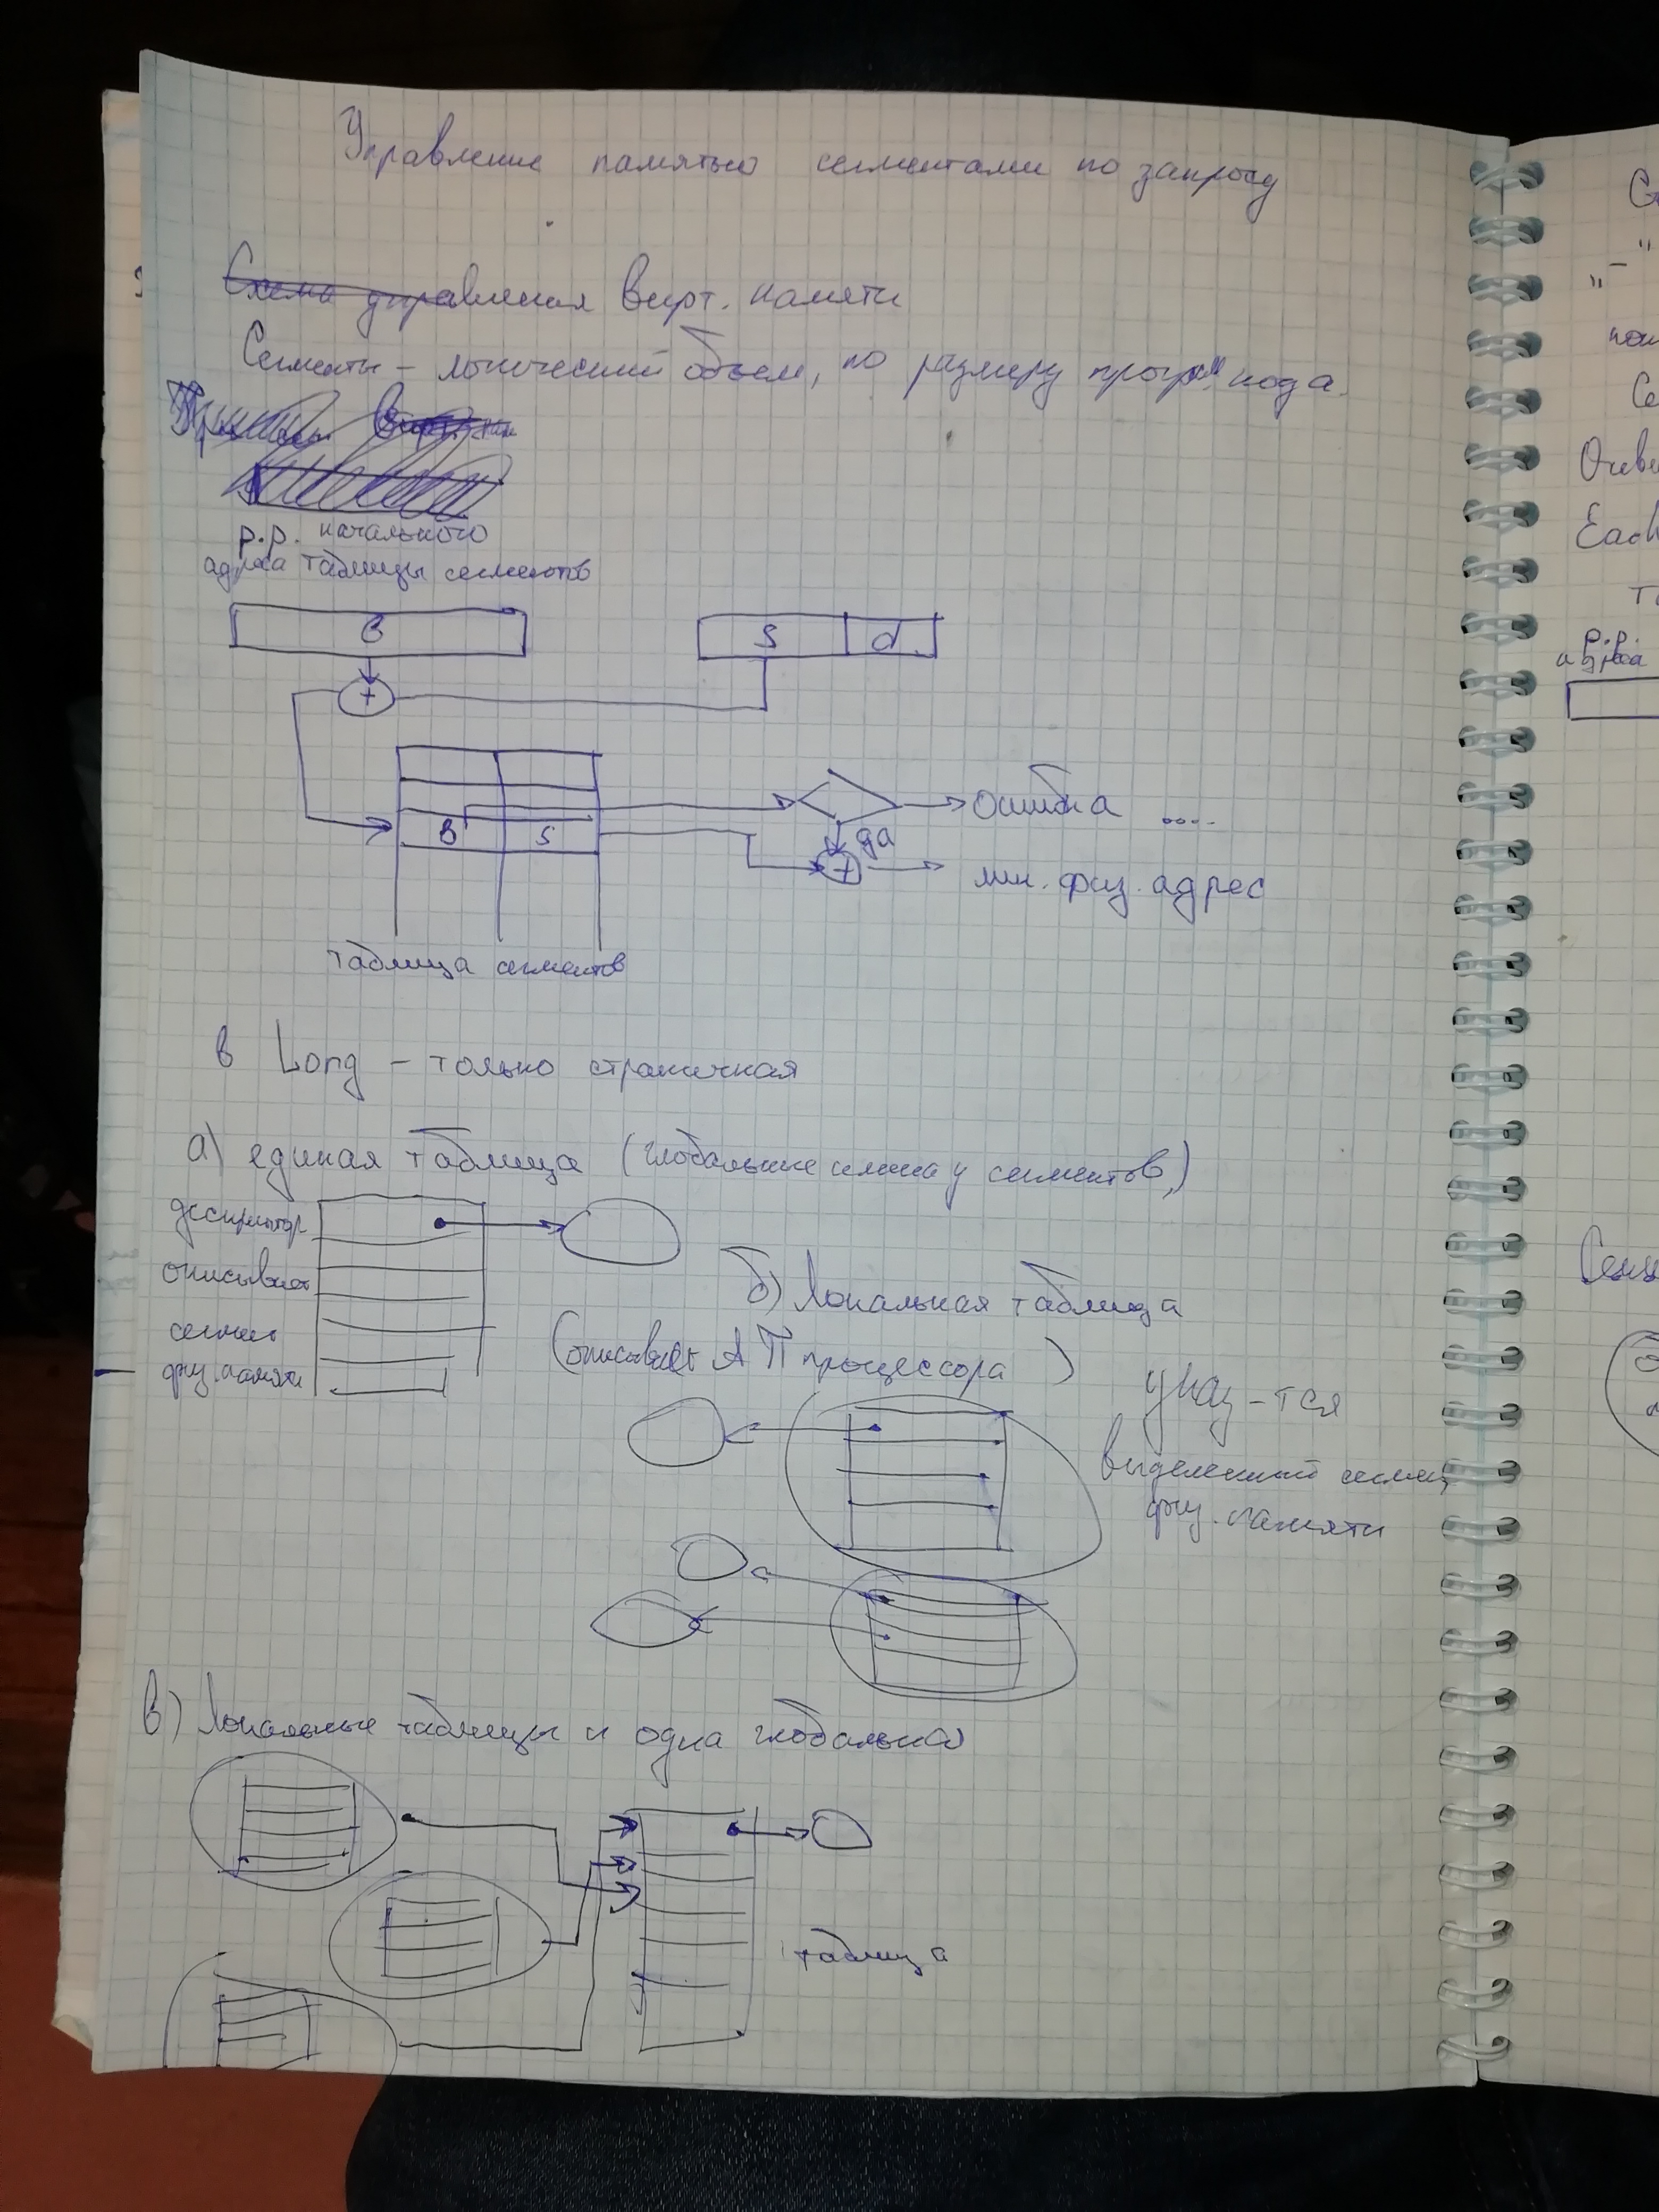 Управление памятью сегментами по запросу
Схема управления вирт. памяти
Сегменты – логический объем, по размеру прогр. кода.
р.р. начального
адреса таблицы сегментов
В
S d
+
В S
ошибка ....
да
+
лин. физ. адрес
таблица сегментов
в Long – только страничная
а) единая таблица (глобальные имена у сегментов,)
дескриптор
описывает
сегмент
физ. памяти
б) Локальная таблица
(описывает АП процессора)
указ-тся
выделенный сегмент
физ. памяти
в) Локальные таблицы и одна глобальная
таблица